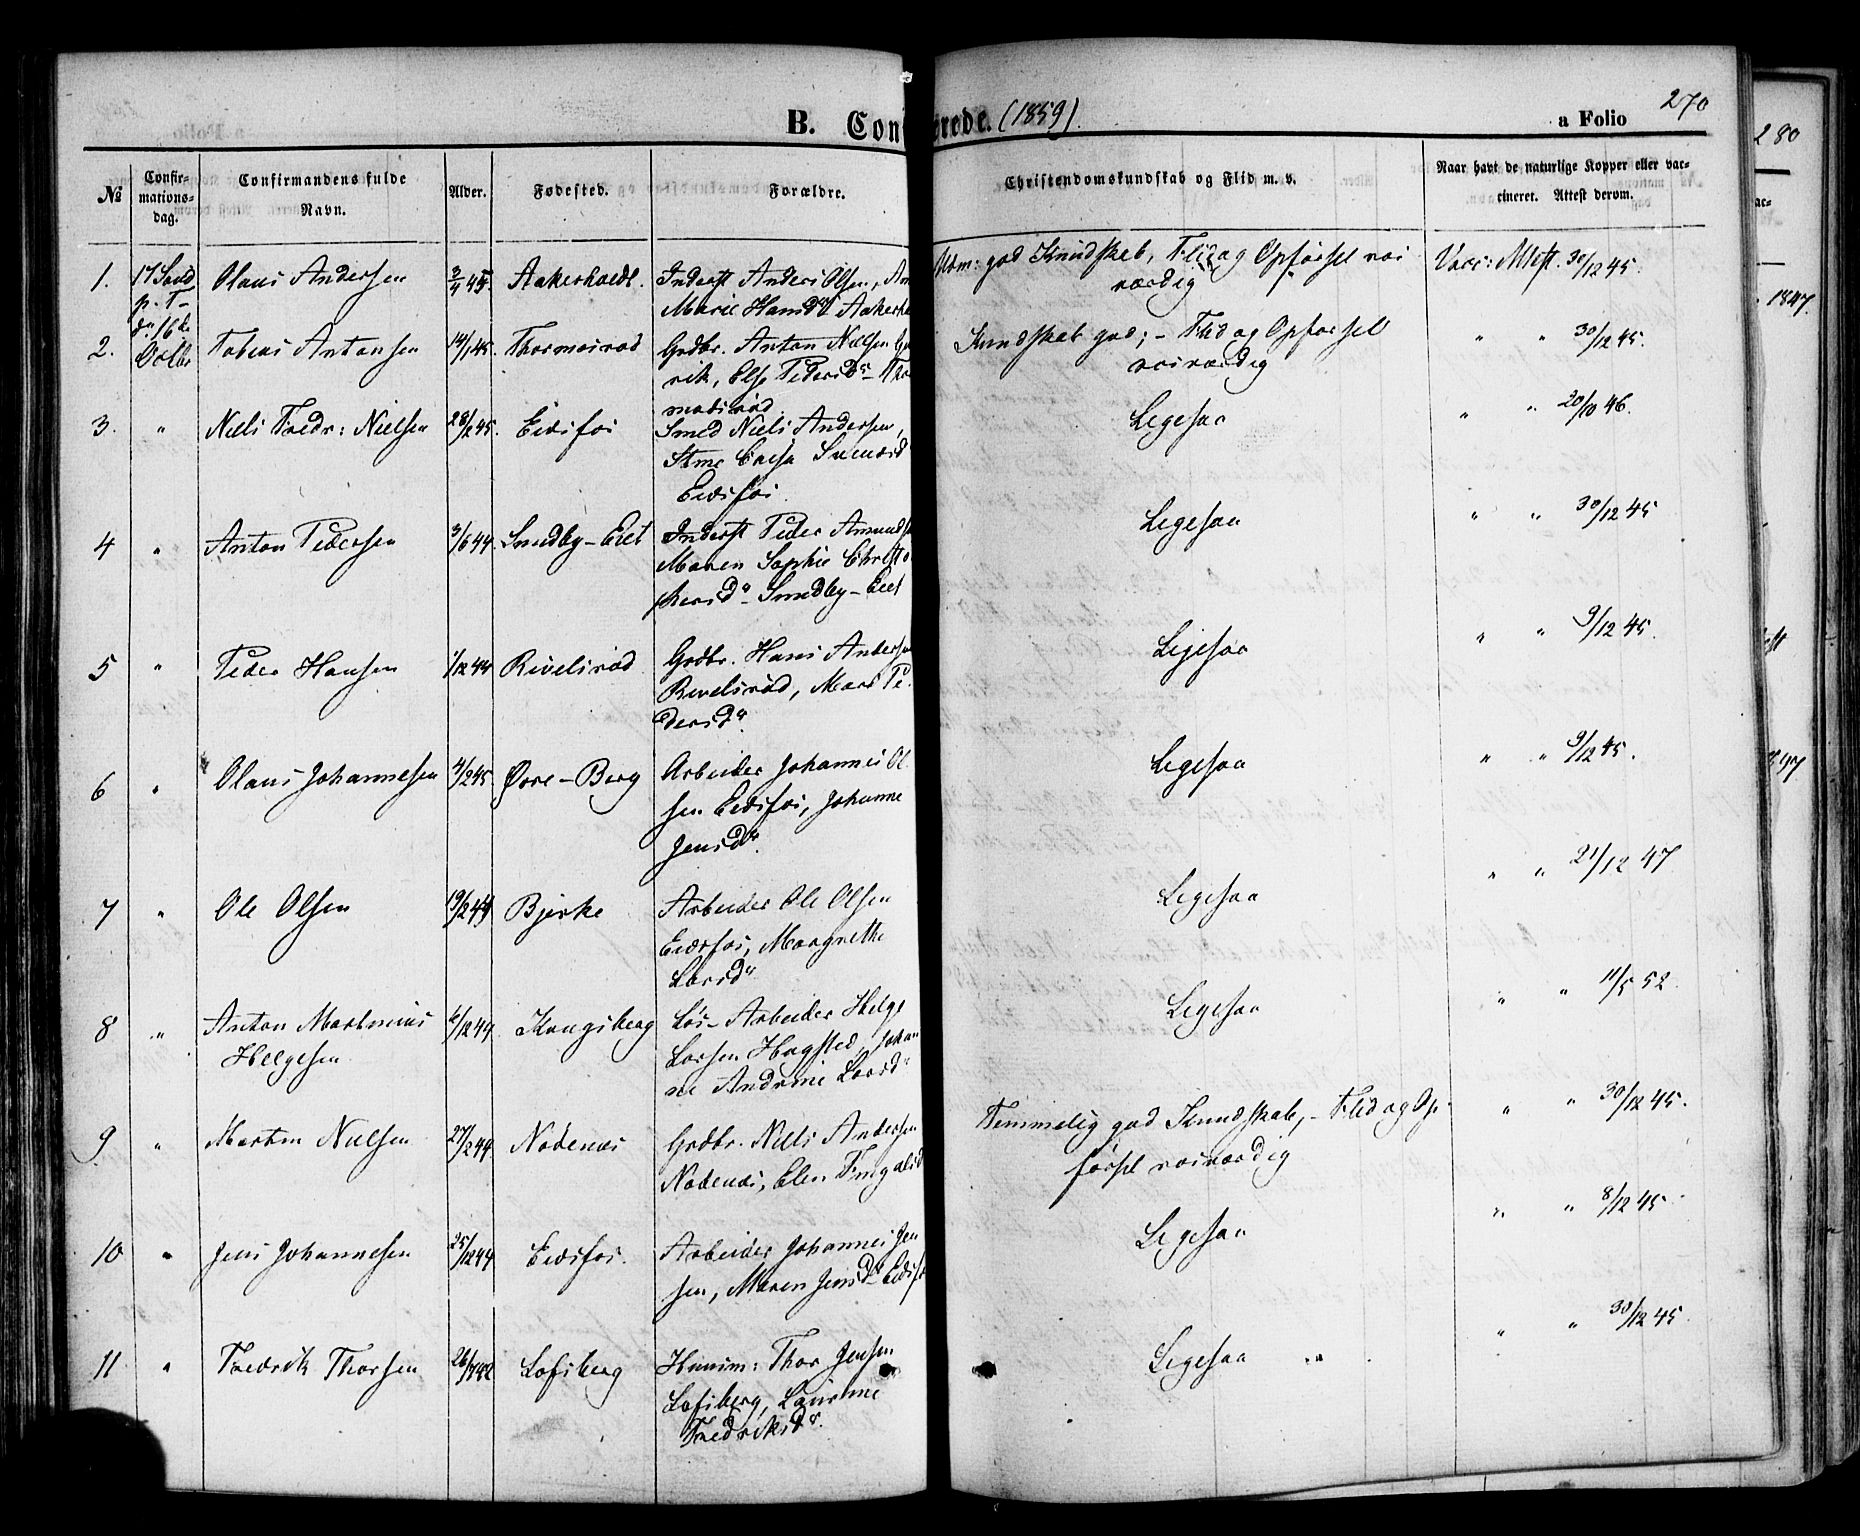 270
B. Con rede. (1859). a Folio
280
№ Confir-mations-dag. Confirmandens fulde Navn. Alder. Fødested. Forældre. Christendomskundskab og Flid m. v. Naar havt de naturlige Kopper eller vac-cineret. Attest derom.
1. 17 Sønd p. T- d: 16de Octbr Olaus Andersen 3/4 45. Aakerholdt. Inderst Anders Olsen,
Marie Hansdr Aakerho
god Kundskab, Flid og Opførsel roi
værdig
Vacc: Attest. 30/12 45.
1847.
2. Tobias Antonsen 14/1 45. Thormosrød Grdbr. Anton Nielsen
Else Pedersdr Tho
mosrød
Kundskab god; - Flid og Opførsel
roisværdig
" " 30/12 45.
3. " Niels Fredr: Nielsen 28/2 45. Eidsfos Smed Niels Andersen,
Eidsfos.
Ligesaa
" " 20/10 46.
4 " Anton Pedersen 3/6 44 Sundby-Eiet Inderst Peder Amunds
Maren Sophie Christo
phersdr Sundby-Eiet
Ligesaa
" " 30/12 45
5 " Peder Hansen 1/12 44 Revelsrød Grdbr. Hans Andersen
Revelsrød, Mari Pe-
dersdr.
Ligesaa
" " 9/12 45.
6 " Olaus Johannesen 4/2 45 Øvre-Berg Arbeider Johannes Ol
sen Eidsfos, Johanne
Jensdr.
Ligesaa
" " 9/12 45.
7 " Ole Olsen 19/2 44 Bjerke Arbeider Ole Olsen
Eidsfos, Margrethe
Larsdr
Ligesaa
" " 21/12 47
8 " Anton Martinius
Helgesen
6/12 44. Kongsberg Løs-Arbeider Helge
Larsen Hagsted, Johan
ne Andrine Larsdr
Ligesaa
" " 11/5 52.
9 " Martin Nielsen 27/2 44 Nodenæs Grdbr. Niels Andersen
Nodenæs, Elen Fingalsd
Temmelig god Kundskab, - Flid og Op-
førsel roisværdig
" " 30/12 45.
10 " Jens Johannesen 25/12 44 Eidsfos. Arbeider Johannes Jen
sen, Maren Jensdr Eidsfo
Ligesaa
" " 8/12 45.
11 " Fredrik Thorsen 26/7 42 Lofsberg Huusm: Thor Jensen
Lofsberg, Laurine
Fredriksdr.
Ligesaa
" " 30/12 45.